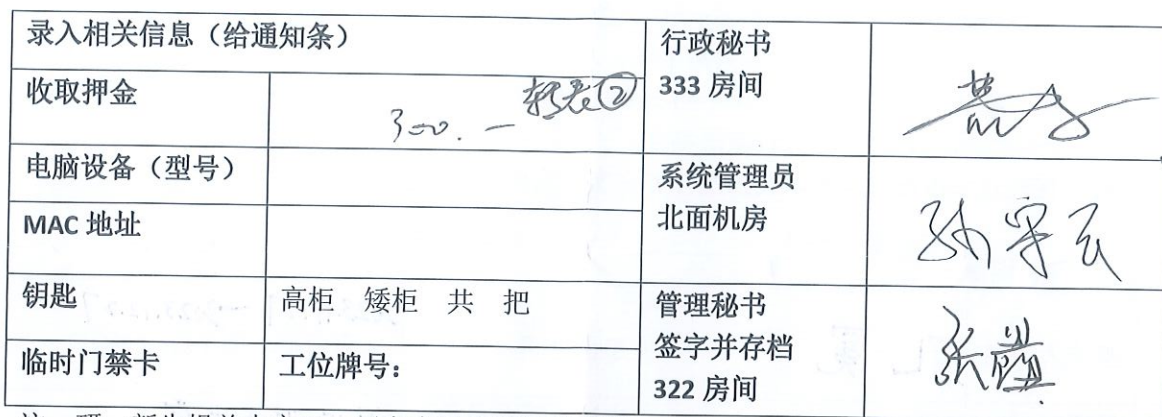 录入相关信息（给通知条）
行政秘书
333 房间
收取押金
300. —
②
电脑设备（型号）
系统管理员
北面机房
MAC 地址
孙守云
钥匙
高柜 矮柜 共 把
管理秘书
签字并存档
322 房间
临时门禁卡
工位牌号：